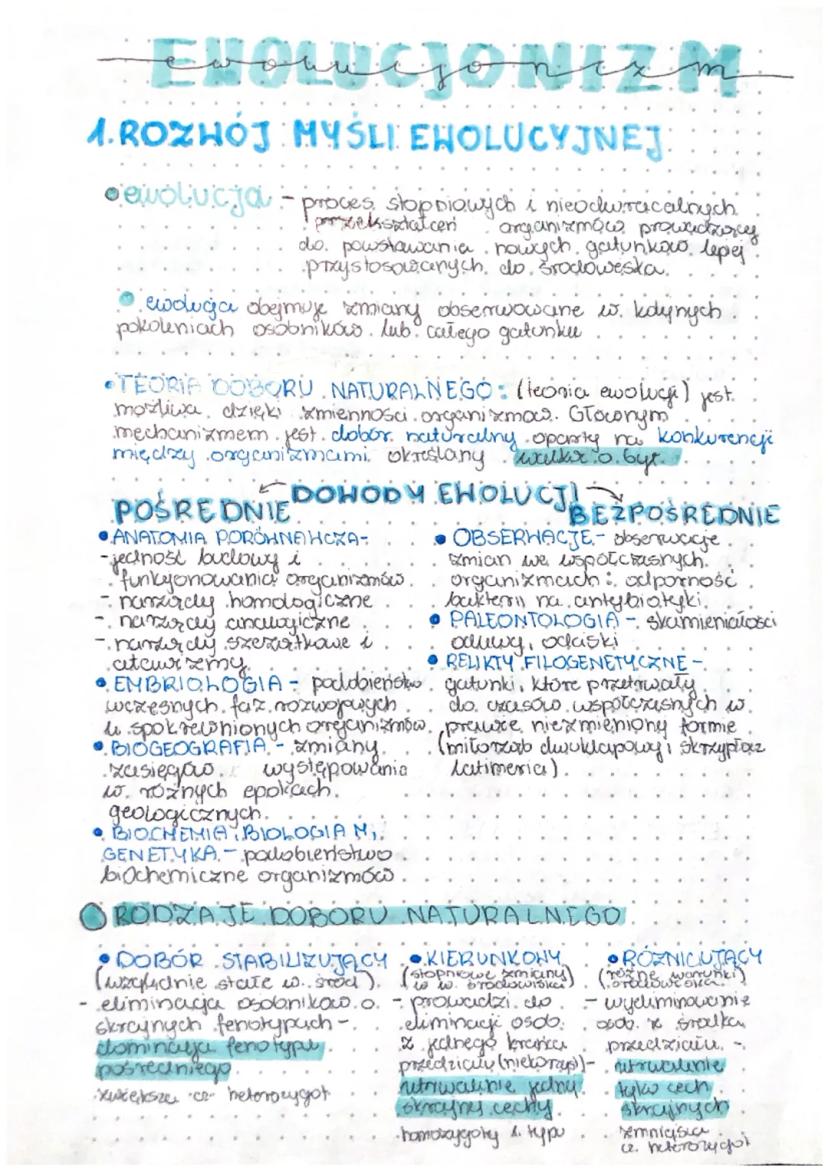 EWOLUCJONIZM
ewolucjonizm
1. ROZWÓJ MYŚLI EWOLUCYJNEJ
ewolucja - proces stopniowych i nieodwracalnych
przekształceń organizmów prowadzący
do powstawania nowych gatunków lepiej
przystosowanych do środowiska.
ewolucja obejmuje zmiany obserwowane w kolejnych
pokoleniach osobników lub całego gatunku
• TEORIA DOBORU NATURALNEGO: (teoria ewolucji) jest
możliwa dzięki zmienności organizmów. Głównym
mechanizmem jest dobór naturalny oparty na konkurencji
między organizmami określany walką o byt.
DOWODY EWOLUCJI
POŚREDNIE
• ANATOMIA PORÓWNAWCZA-
- jedność budowy i
funkcjonowania organizmów
- narządy homologiczne
- narządy analogiczne
- narządy szczątkowe i
atawizmy
• EMBRIOLOGIA - podobieństwo
wczesnych faz rozwojowych
u spokrewnionych organizmów
• BIOGEOGRAFIA - zmiany
zasięgów występowania
w różnych epokach
geologicznych.
• BIOCHEMIA, BIOLOGIA M,
GENETYKA - podobieństwo
biochemiczne organizmów
BEZPOŚREDNIE
• OBSERWACJE - obserwacje
zmian we współczesnych
organizmach: odporność
bakterii na antybiotyki
• PALEONTOLOGIA - skamieniałości
odlewy, odciski
• RELIKTY FILOGENETYCZNE -
gatunki, które przetrwały
do czasów współczesnych w
prawie niezmieniony formie
(miłorząb dwuklapowy i skrzypłocz
latimeria).
RODZAJE DOBORU NATURALNEGO
• DOBÓR STABILIZUJĄCY
(względnie stałe w. środ)
- eliminacja osobników o
skrajnych fenotypach -
dominacja fenotypu
pośredniego
zwiększa cz heterozygot
• KIERUNKOWY
(stopniowe zmiany
w w. środowiska)
- prowadzi do
eliminacji osob.
z jednego krańca
przedziału (niekorzys)-
utrwalanie jednej
skrajnej cechy
homozygoty 1. typu
• RÓŻNICUJĄCY
(różne warunki
środowiska)
- wyeliminowanie
osob. z środka
przedziału -
utrwalanie
tylko cech
skrajnych
zmniejsza
cz. heterozygot